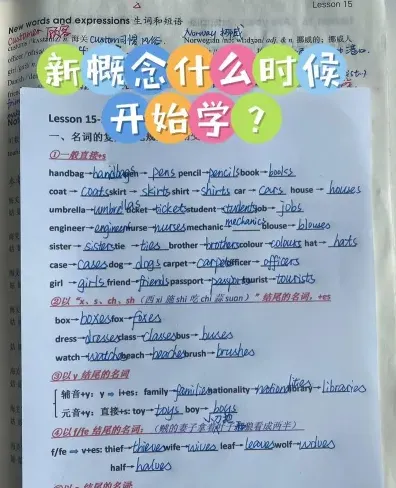 Lesson 15
New words and expressions 生词和短语
Customer 顾客
Custom习惯 风俗
Norway 挪威
海关
Norwegian
adj. & n. 挪威的；挪威人
新概念什么时候
开始学？
Lesson 15-
一、名词的复
①一般直接+s
handbag→handbags pen→pens pencil→pencils book→books
coat→coats skirt→skirts shirt→shirts car→cars house→houses
umbrella→umbrellas ticket→tickets student→students job→jobs
engineer→engineers nurse→nurses mechanic→mechanics blouse→blouses
sister→sisters tie→ties brother→brothers colour→colours hat→hats
case→cases dog→dogs carpet→carpets officer→officers
girl→girls friend→friends passport→passports tourist→tourists
②以“x、s、ch、sh（西xi 施shi 吃chi 蒜suan）”结尾的名词，+es
box→boxes fox→foxes
dress→dresses class→classes bus→buses
watch→watches beach→beaches brush→brushes
③以y结尾的名词
辅音+y: y⇒i+es: family→families nationality→nationalities library→libraries
元音+y: 直接+s: toy→toys boy→boys
④以f/fe 结尾的名词：（贼的妻子拿着叶子
小刀
看成两半）
f/fe⇒v+es: thief→thieves wife→wives leaf→leaves wolf→wolves
half→halves